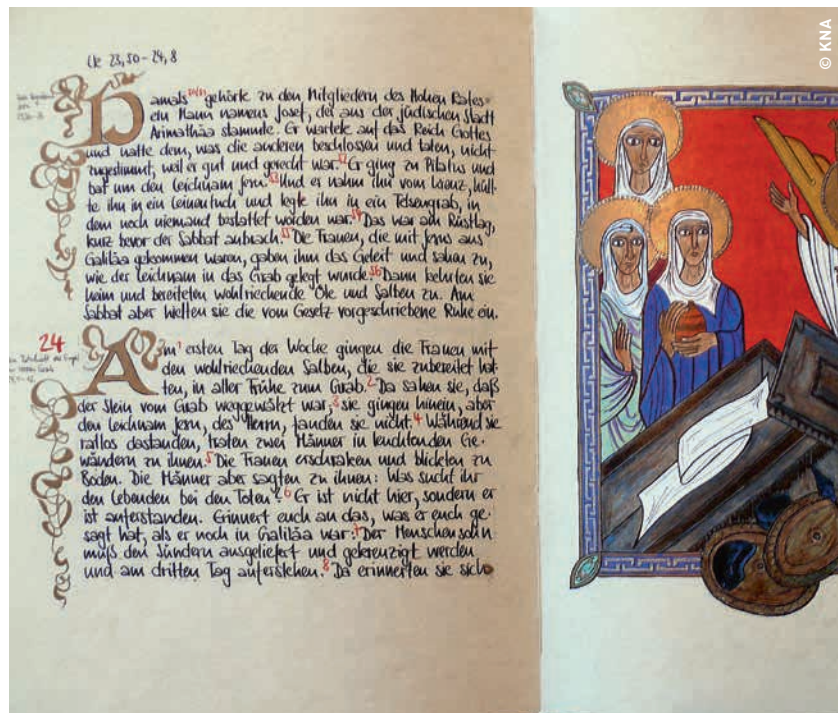 © KNA
Lk 23,50-24,8
Damals 50/51 gehörte zu den Mitgliedern des Hohen Rates
ein Mann namens Josef, der aus der jüdischen Stadt
Arimathäa stammte. Er wartete auf das Reich Gottes
und hatte dem, was die anderen beschlossen und taten, nicht
zugestimmt, weil er gut und gerecht war. 52 Er ging zu Pilatus und
bat um den Leichnam Jesu. 53 Und er nahm ihn vom Kreuz, hüll-
te ihn in ein Leinentuch und legte ihn in ein Felsengrab, in
dem noch niemand bestattet worden war. 54 Das war am Rüsttag,
kurz bevor der Sabbat anbrach. 55 Die Frauen, die mit Jesus aus
Galiläa gekommen waren, gaben ihm das Geleit und sahen zu,
wie der Leichnam in das Grab gelegt wurde. 56 Dann kehrten sie
heim und bereiteten wohlriechende Öle und Salben zu. Am
Sabbat aber hielten sie die vom Gesetz vorgeschriebene Ruhe ein.
24
Am 1 ersten Tag der Woche gingen die Frauen mit
den wohlriechenden Salben, die sie zubereitet hat-
ten, in aller Frühe zum Grab. 2 Da sahen sie, daß
der Stein vom Grab weggewälzt war; 3 sie gingen hinein, aber
den Leichnam Jesu, des Herrn, fanden sie nicht. 4 Während sie
ratlos dastanden, traten zwei Männer in leuchtenden Ge-
wändern zu ihnen. 5 Die Frauen erschraken und blickten zu
Boden. Die Männer aber sagten zu ihnen: Was sucht ihr
den Lebenden bei den Toten? 6 Er ist nicht hier, sondern er
ist auferstanden. Erinnert euch an das, was er euch ge-
sagt hat, als er noch in Galiläa war: 7 Der Menschensohn
muß den Sündern ausgeliefert und gekreuzigt werden
und am dritten Tag auferstehen. 8 Da erinnerten sie sich